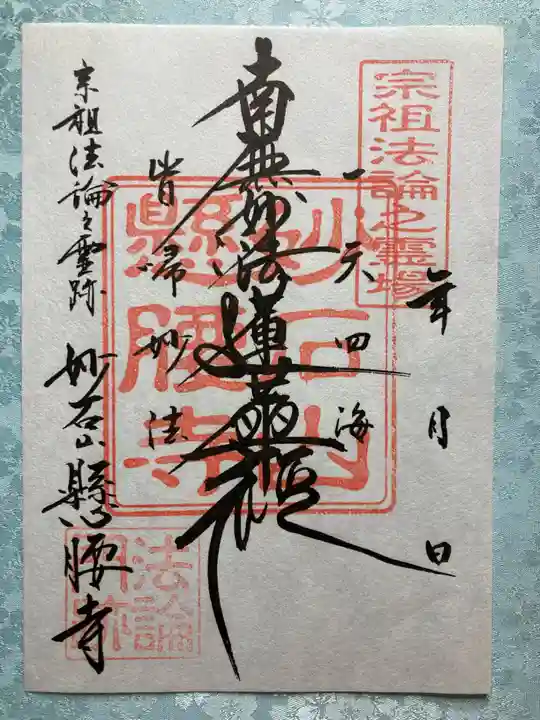 宗祖法論之霊場
年月日
一天四海
南無妙法蓮華経
皆帰妙法
妙石山懸腰寺
宗祖法論之霊跡
妙石山懸腰寺
法論